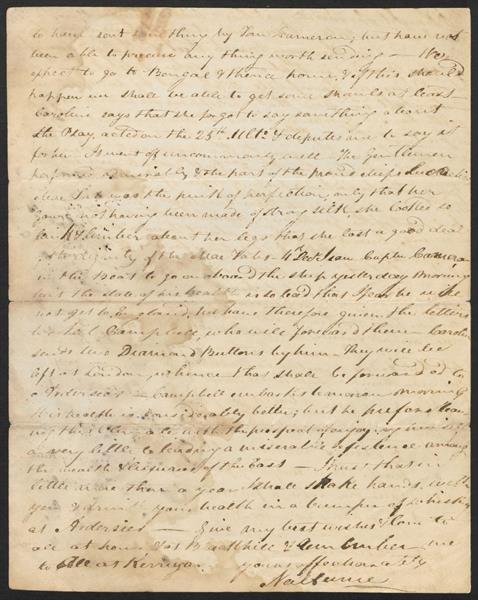 to have sent something by Tom Cameron, but have not
been able to procure any thing worth sending — We
expect to go to Bengal & thence home, & if this should
happen we shall be able to get some Shawls at Cost —
Caroline says that she forgot to say something about
the Play, acted on the 25th Ulto. & deputes me to say it
for her. It went off uncommonly well — The Gentlemen
played admirably & the part of the
was the pink of perfection, only that her
Gown not having been made of stray silk she looked so
about her legs that she lost a good deal
of the dignity of the 4th Decr. I saw Captn. Cameron
in the Boat to go on aboard the ship yesterday Morning
but the state of his health is so bad that I fear he will
not get to England, we have therefore given the letters
to Campbell, who will forward them — Caroline
sends two Diamond Buttons by him — They will be
left at London, whence they shall be forwarded to
Campbell embarks tomorrow morning
his health is considerably better, but he prefers leaving
this with the prospect of enjoying
a very little to leading a miserable existence among
the wealth & luxuries of the East — I trust that in
little more than a year I shall shake hands with
you & drink your health in a bumper of whiskey
at — Give my best wishes & love to
all at home & at & remember me
to all at
yours affectionately